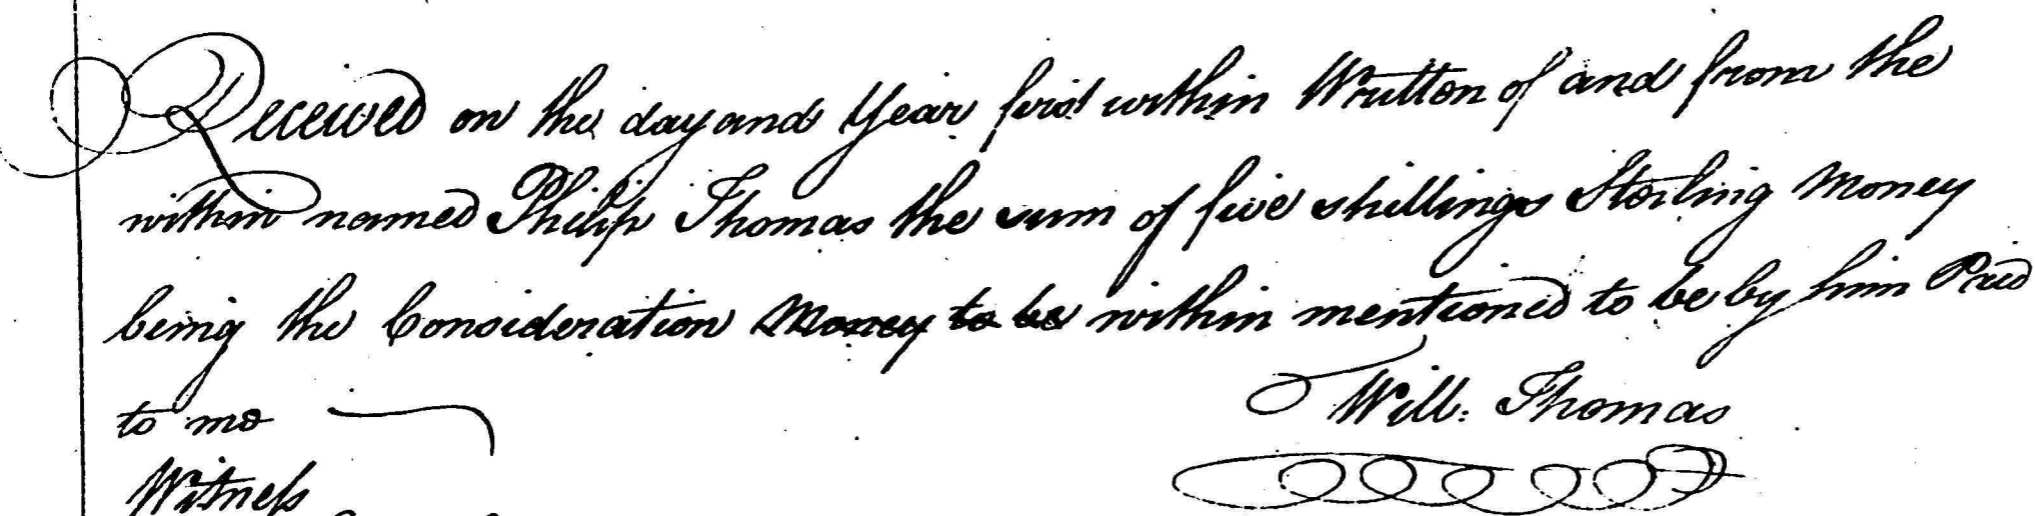 Received on the day and Year first within Written of and from the
within named Philip Thomas the sum of five shillings Sterling Money
being the Consideration Money to be within mentioned to be by him Paid
to me
Will: Thomas
Witness